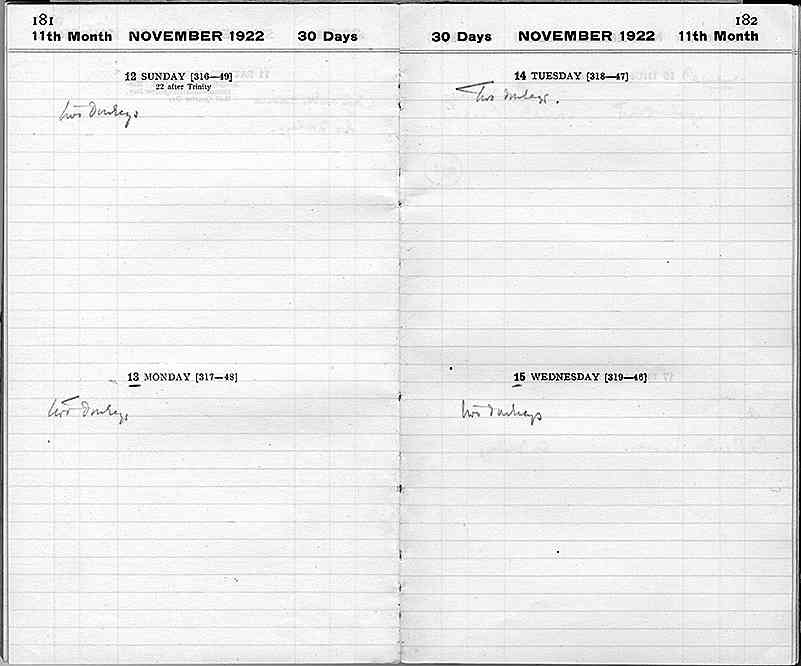 181
11th Month NOVEMBER 1922 30 Days
12 SUNDAY [316—49]
22 after Trinity
two Donkeys
13 MONDAY [317—48]
two Donkeys
182
30 Days NOVEMBER 1922 11th Month
14 TUESDAY [318—47]
Two donkeys.
15 WEDNESDAY [319—46]
two donkeys